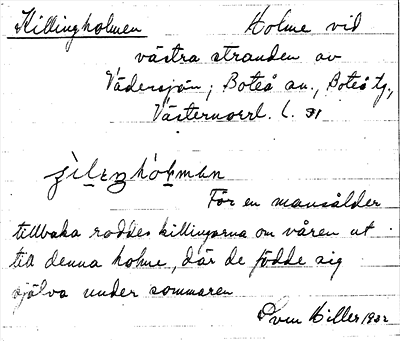 Killingholmen Holme vid
västra stranden av
Vädersjön, Boteå sn., Boteå tg,
Västernorrl. l. 31
För en mansålder
tillbaka roddes killingarna om våren ut
till denna holme, där de födde sig
själva under sommaren
Sven Hiller 1932